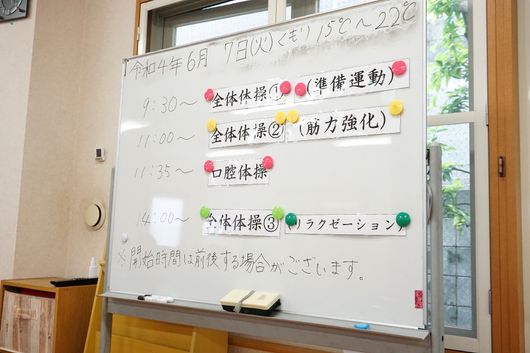 令和4年6月 7日(火)くもり 15℃〜22℃
9:30〜 全体体操① (準備運動)
11:00〜 全体体操② (筋力強化)
11:35〜 口腔体操
14:00〜 全体体操③ (リラクゼーション)
※開始時間は前後する場合がございます。